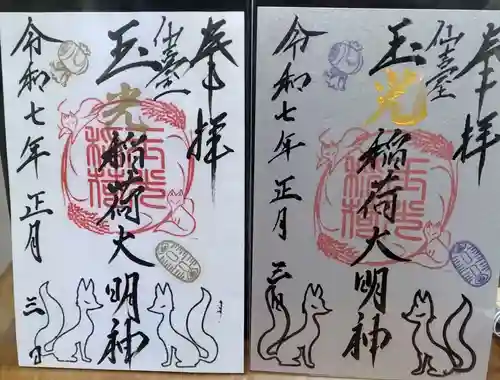 奉拝
仙臺
玉光稲荷大明神
令和七年正月三日
奉拝
仙臺
玉光稲荷大明神
令和七年正月三日